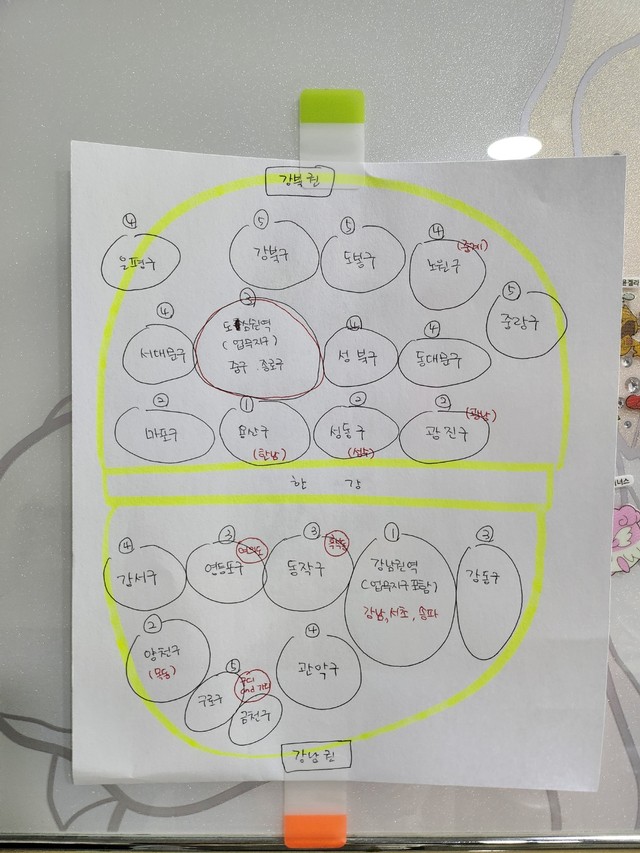 강북권
④
은평구
⑤
강북구
⑤
도봉구
④
(중계)
노원구
⑤
중랑구
④
서대문구
③
도심권역
(업무지구)
중구, 종로구
④
성북구
④
동대문구
②
마포구
①
용산구
(한남)
②
성동구
(성수)
②
(광남)
광진구
한 강
④
강서구
③
여의도
영등포구
③
흑석동
동작구
①
강남권역
(업무지구 포함)
강남, 서초, 송파
③
강동구
②
양천구
(목동)
⑤
구로구
구디
and 가디
금천구
④
관악구
강남권